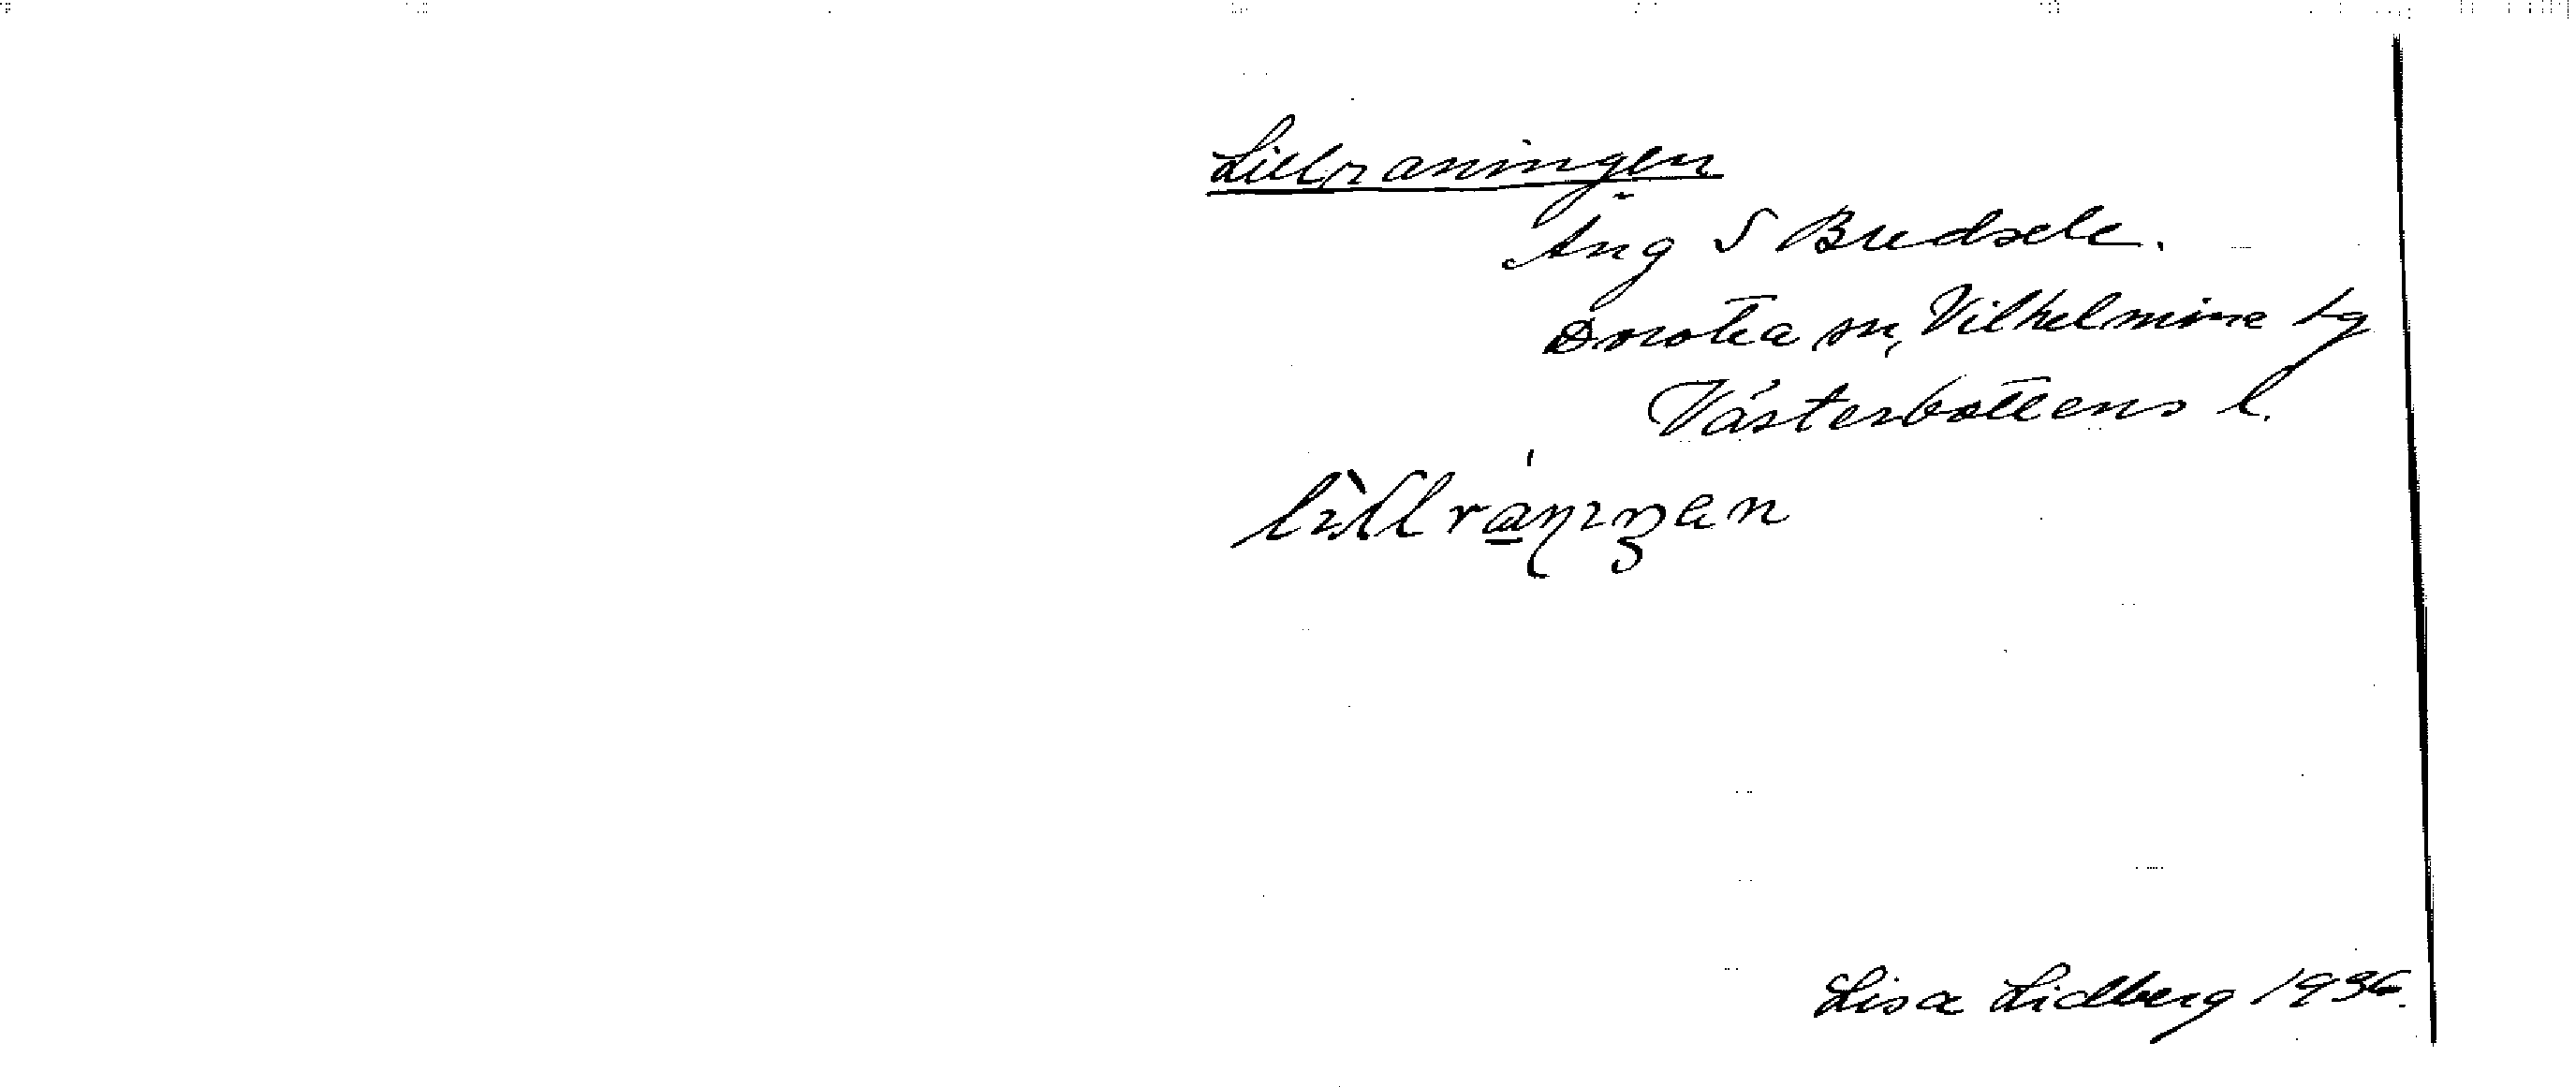 Lillraningen
Äng S Bredsele.
Dorotea sn, Vilhelmina tg
Västerbottens l.
lìllrańıŋan
Lisa Lidberg 1936.